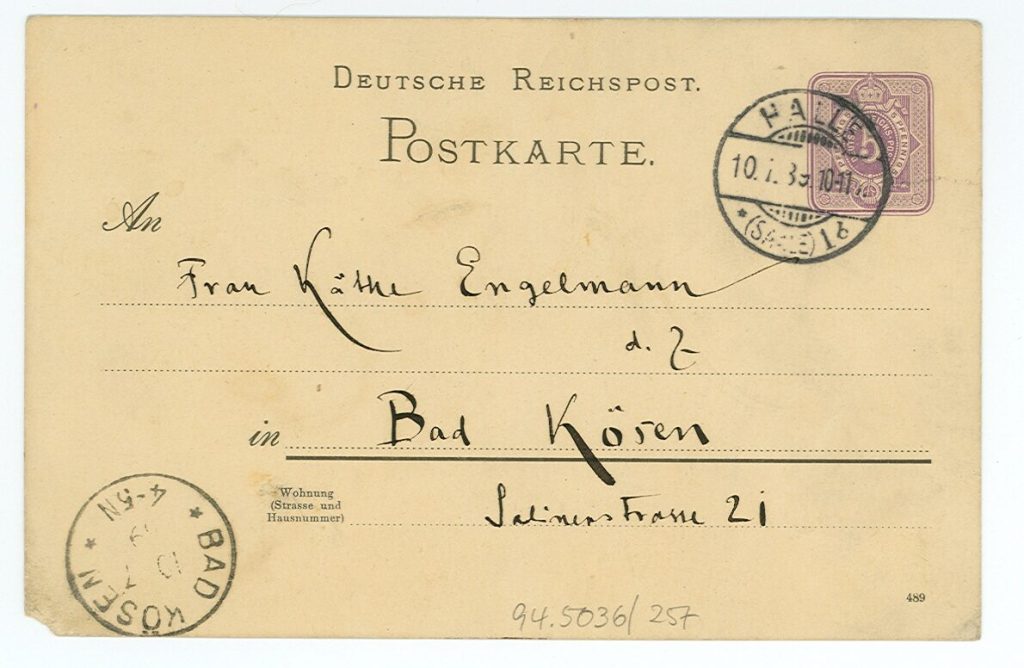 DEUTSCHE REICHSPOST.
POSTKARTE.
HALLE
10. 10-11
* (SAALE) 1d
5 PFENNIG
REICHS-POST
An
Frau Käthe Engelmann
d. Z
in Bad Kösen
Wohnung
(Strasse und
Hausnummer)
Salinenstrasse 21
* BAD KÖSEN *
4-5N
489
94.5036/257